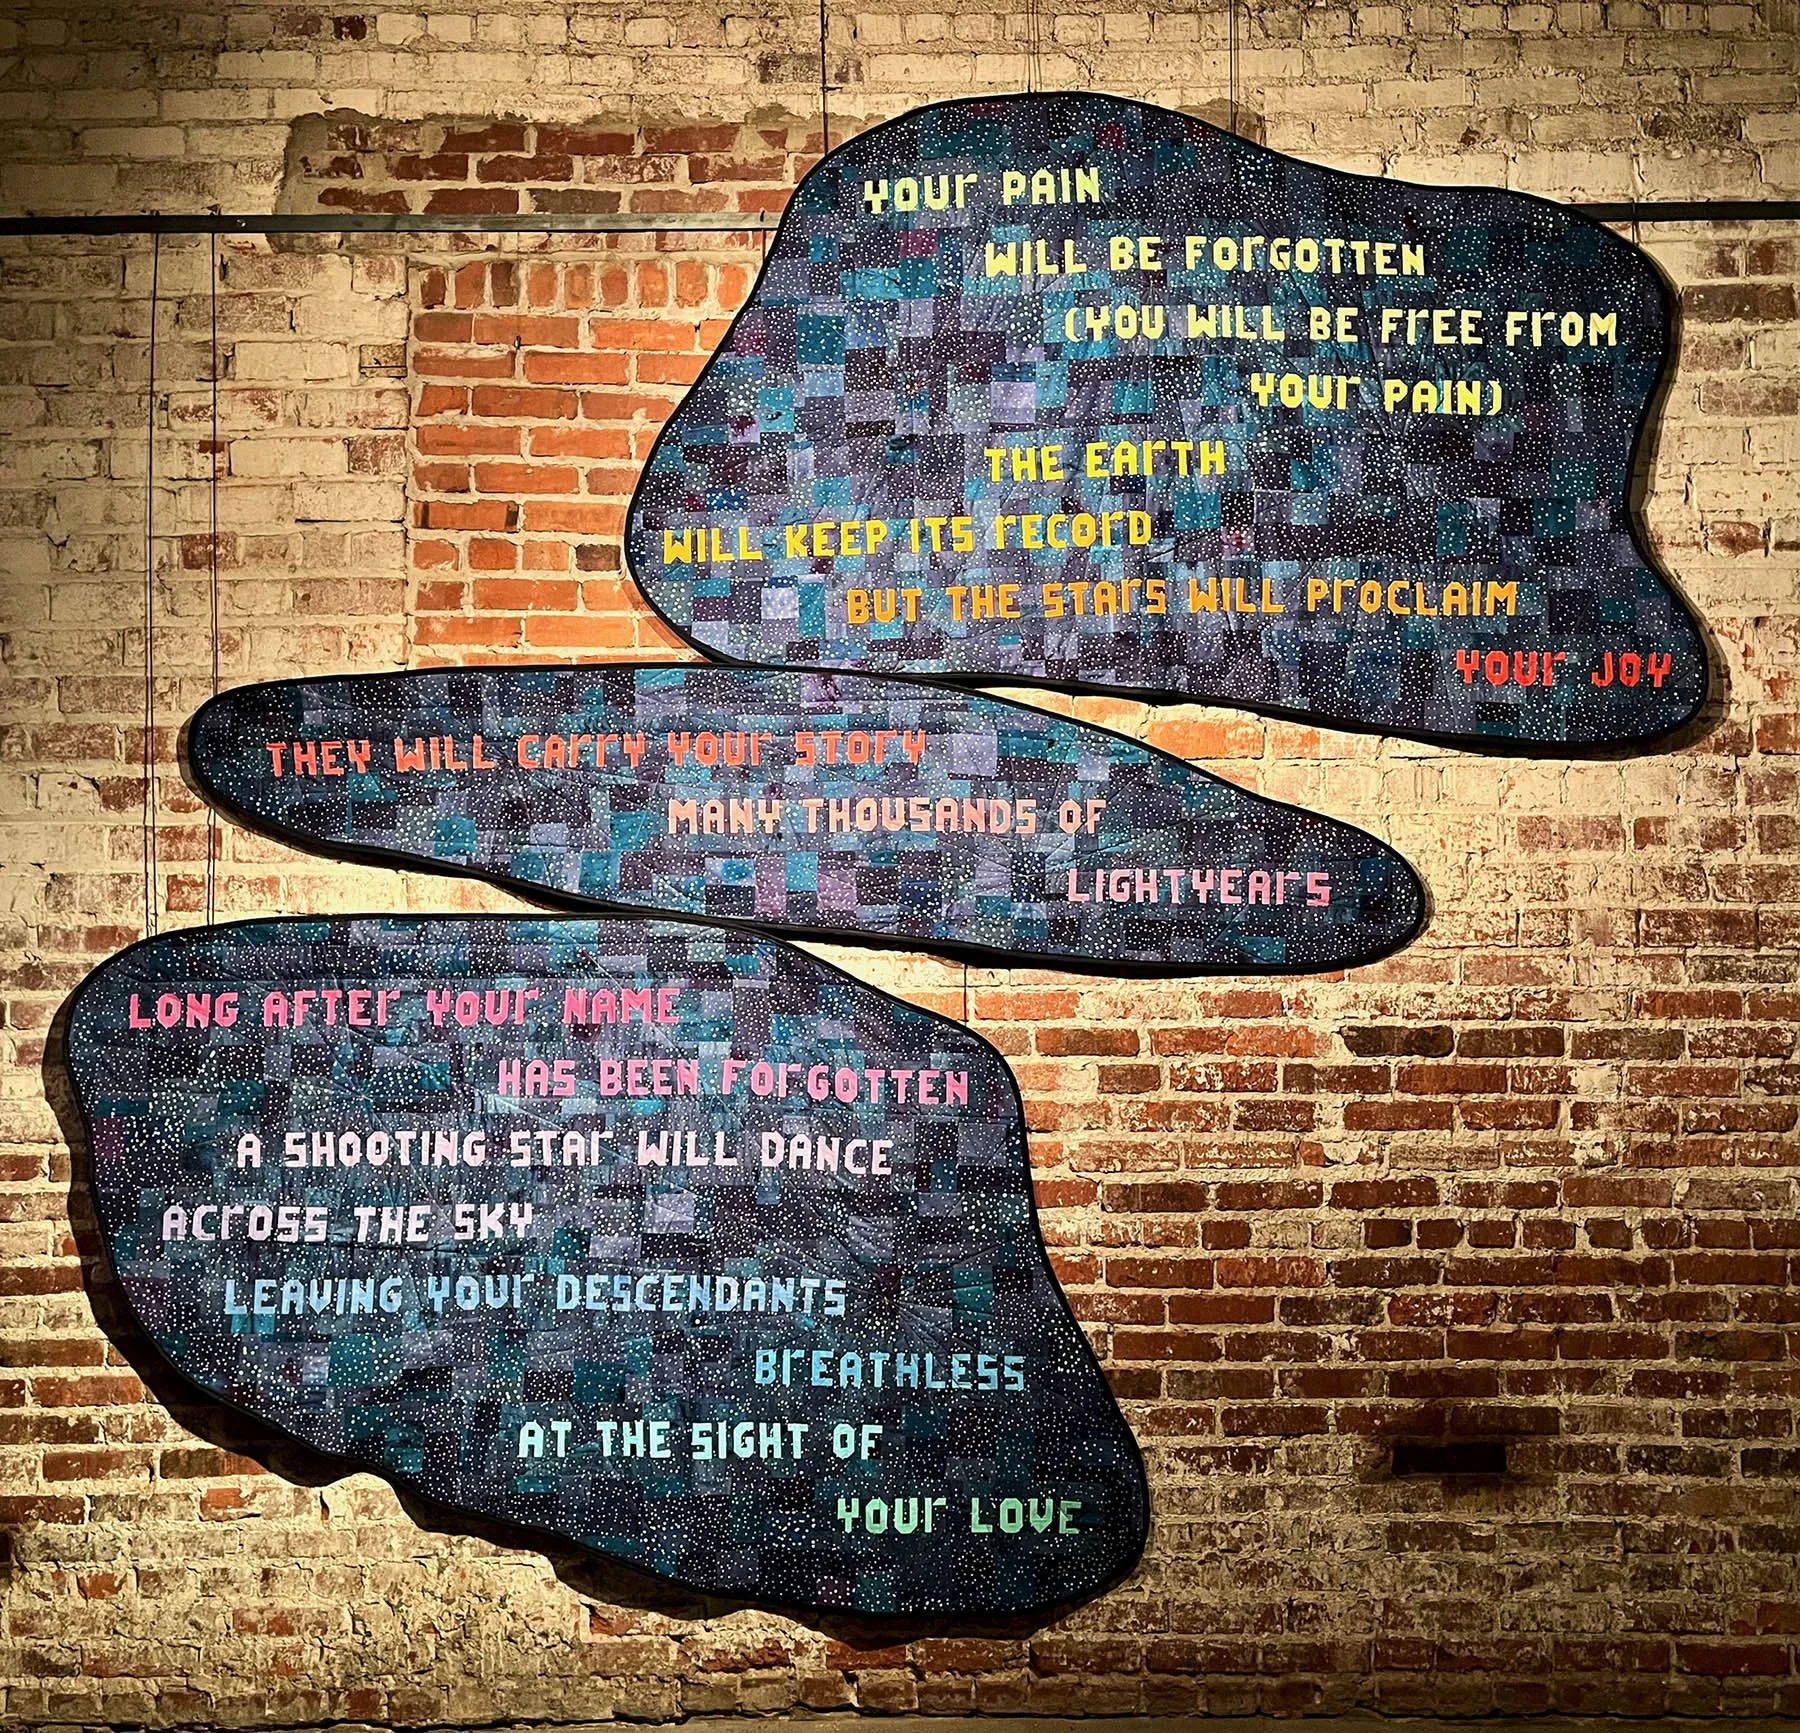 YOUr PAIN
WILL BE FOrGOTTEN
(YOU WILL BE FrEE FrOM
YOUr PAIN)
THE EArTH
WILL KEEP ITS rECOrD
BUT THE STArS WILL PrOCLAIM
YOUr JOY
THEY WILL CArrY YOUr STOrY
MANY THOUSANDS OF
LIGHTYEArS
LONG AFTEr YOUr NAME
HAS BEEN FOrGOTTEN
A SHOOTING STAr WILL DANCE
ACrOSS THE SKY
LEAVING YOUr DESCENDANTS
BrEATHLESS
AT THE SIGHT OF
YOUr LOVE